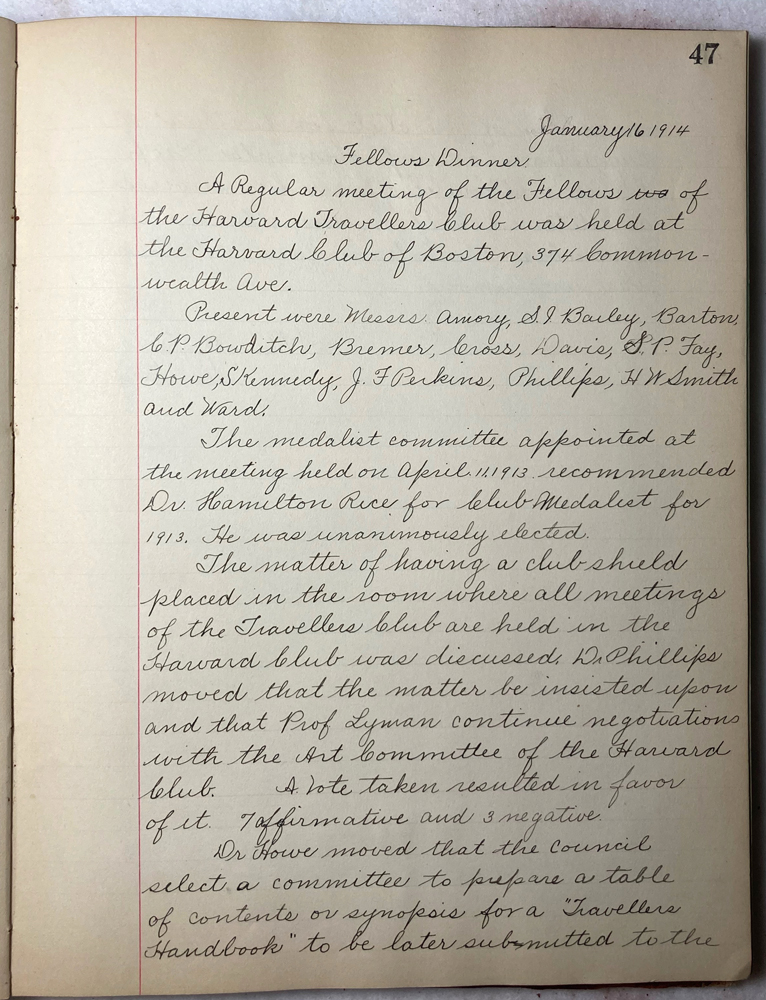 47
January 16 1914
Fellows Dinner.
A Regular meeting of the Fellows was of
the Harvard Travellers Club was held at
the Harvard Club of Boston, 374 Common-
wealth Ave.
Present were Messrs. Amory, S. I Bailey, Barton,
C. P. Bowditch, Bremer, Cross, Davis, S. P. Fay,
Howe, S Kennedy, J. F Perkins, Phillips, H W Smith
and Ward.
The medalist committee appointed at
the meeting held on April. 11, 1913 recommended
Dr. Hamilton Rice for Club Medalist for
1913. He was unanimously elected.
The matter of having a club shield
placed in the room where all meetings
of the Travellers Club are held in the
Harvard Club was discussed. Dr Phillips
moved that the matter be insisted upon
and that Prof Lyman continue negotiations
with the Art Committee of the Harvard
Club. A Vote taken resulted in favor
of it. 7 affirmative and 3 negative.
Dr Howe moved that the council
select a committee to prepare a table
of contents or synopsis for a "Travellers
Handbook" to be later submitted to the